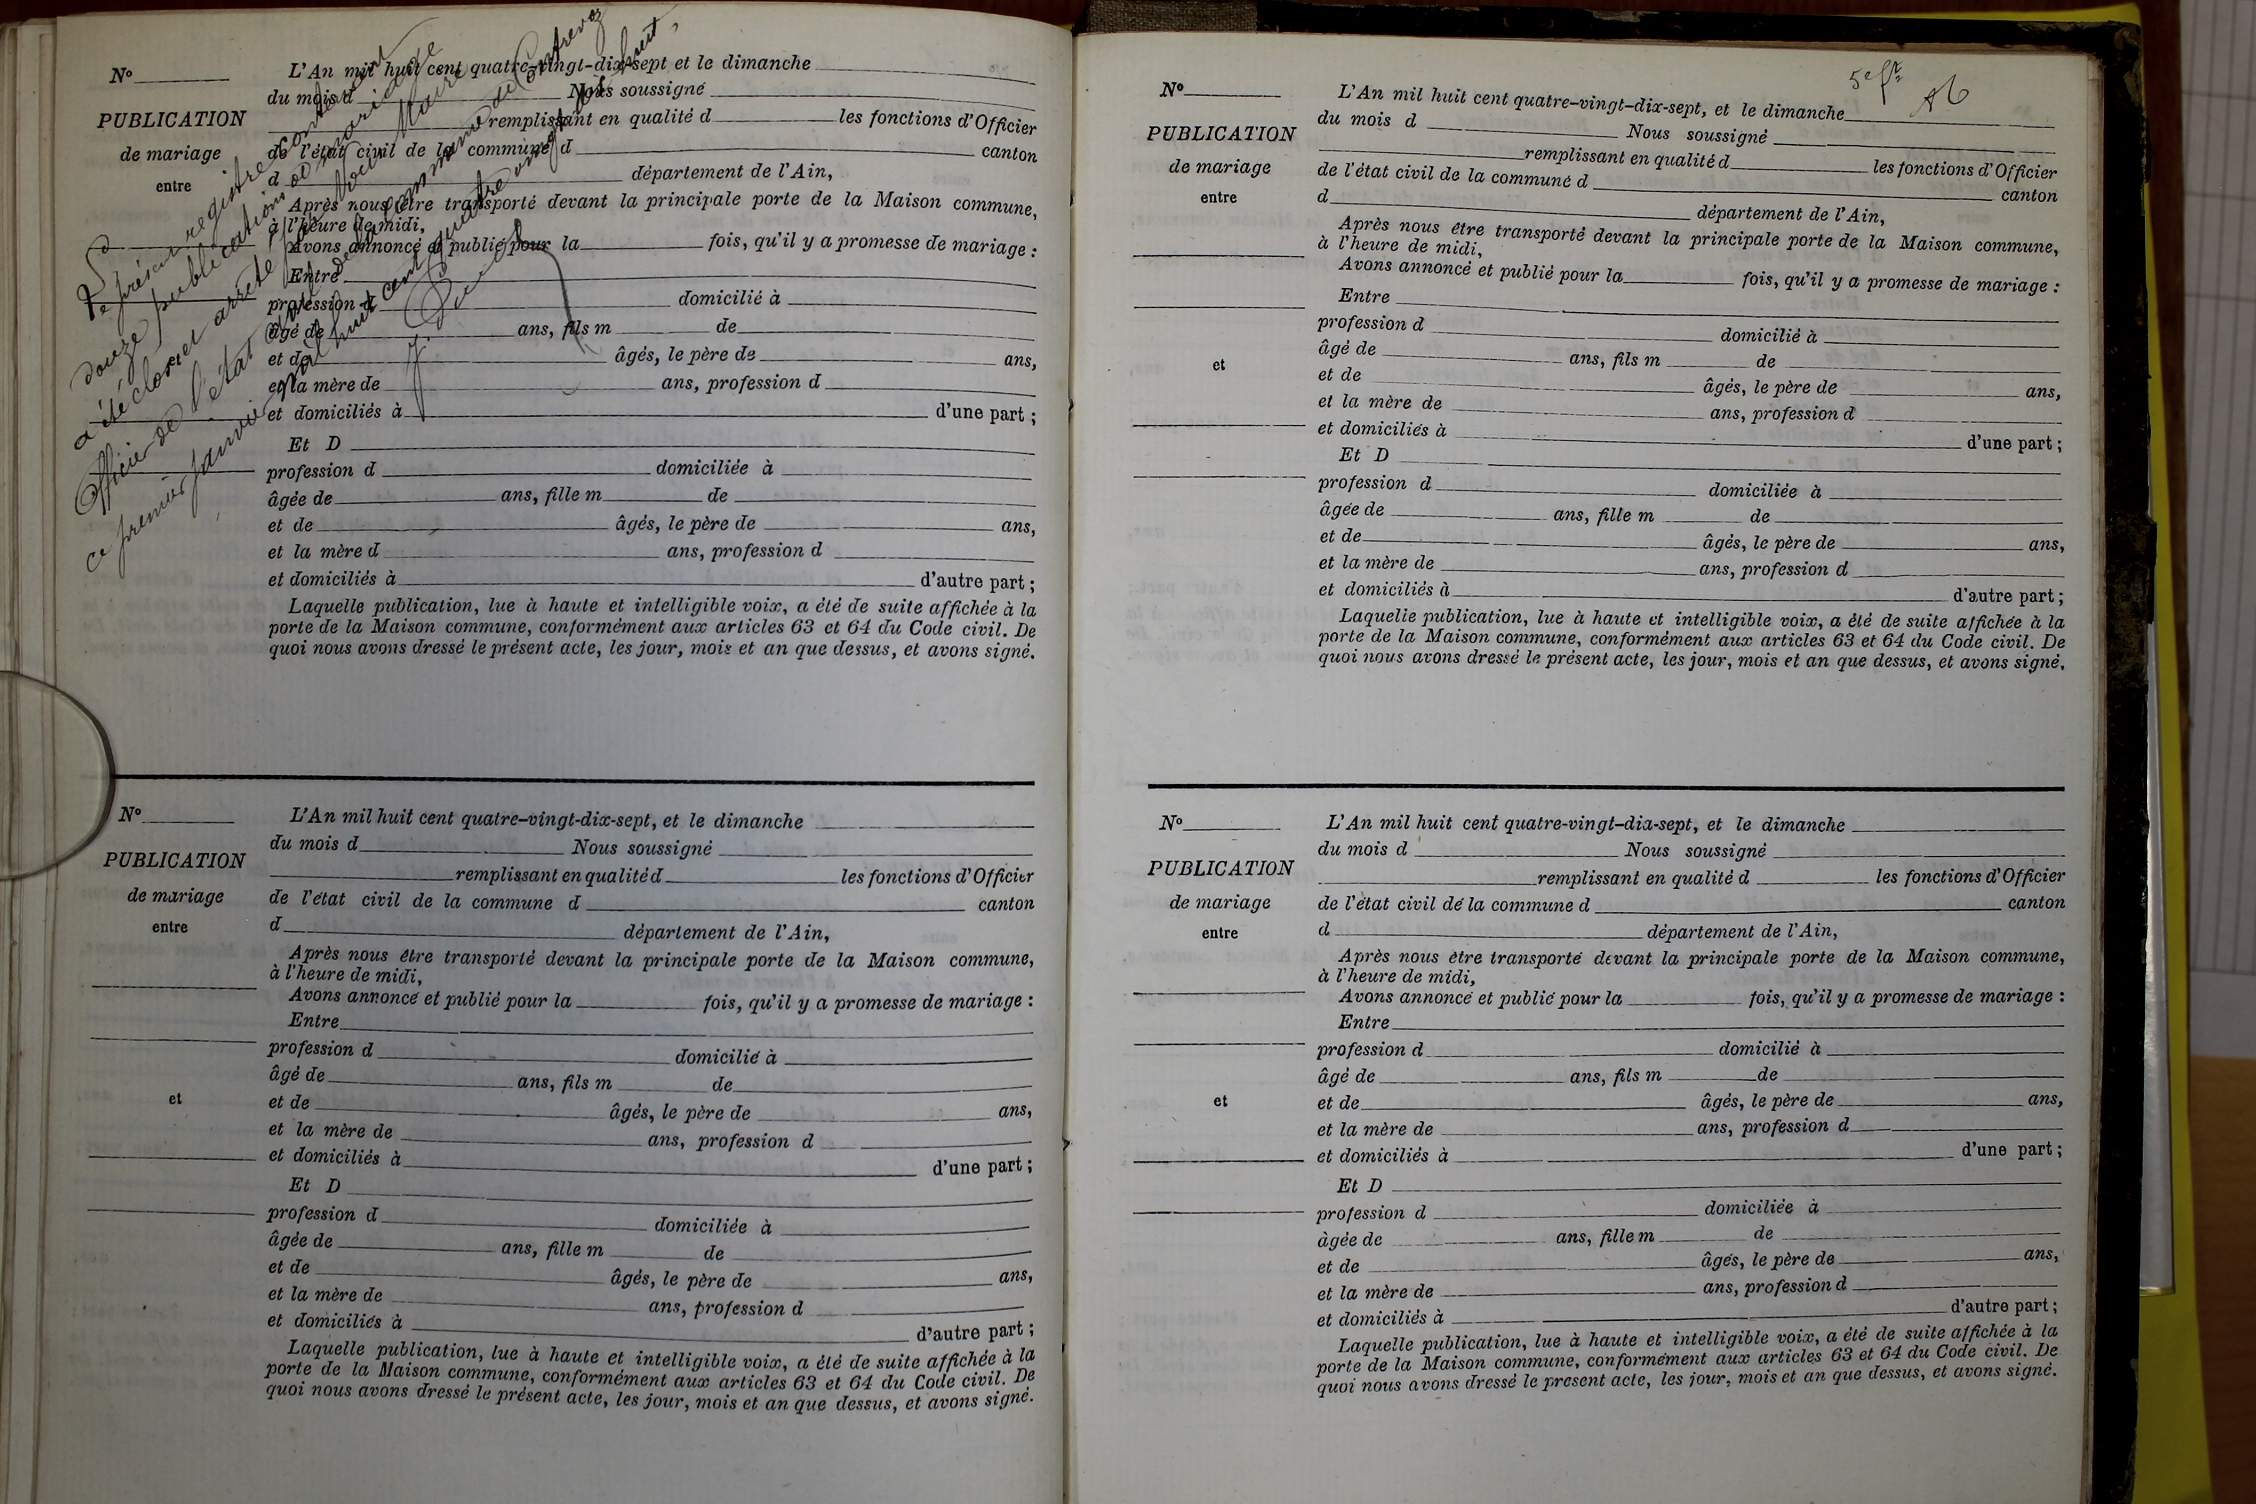 Le présent registre contenant
douze publications de mariage
a été clos et arrêté par Nous Maire
Officier de l'état civil de la commune de Contrevoz
ce premier janvier mil huit cent quatre vingt dix huit,
Nº
PUBLICATION
de mariage
entre
L'An mil huit cent quatre-vingt-dix-sept et le dimanche
du mois d Nous soussigné
remplissant en qualité d les fonctions d'Officier
de l'état civil de la commune d canton
d département de l'Ain,
Après nous être transporté devant la principale porte de la Maison commune,
à l'heure de midi,
Avons annoncé et publié pour la fois, qu'il y a promesse de mariage :
Entre
profession d domicilié à
âgé de ans, fils m de
et de âgés, le père de ans,
et la mère de ans, profession d
et domiciliés à d'une part ;
Et D
profession d domiciliée à
âgée de ans, fille m de
et de âgés, le père de ans,
et la mère d ans, profession d
et domiciliés à d'autre part ;
Laquelle publication, lue à haute et intelligible voix, a été de suite affichée à la
porte de la Maison commune, conformément aux articles 63 et 64 du Code civil. De
quoi nous avons dressé le présent acte, les jour, mois et an que dessus, et avons signé.
Nº
PUBLICATION
de mariage
entre
et
L'An mil huit cent quatre-vingt-dix-sept, et le dimanche
du mois d Nous soussigné
remplissant en qualité d les fonctions d'Officier
de l'état civil de la commune d canton
d département de l'Ain,
Après nous être transporté devant la principale porte de la Maison commune,
à l'heure de midi,
Avons annoncé et publié pour la fois, qu'il y a promesse de mariage :
Entre
profession d domicilié à
âgé de ans, fils m de
et de âgés, le père de ans,
et la mère de ans, profession d
et domiciliés à d'une part ;
Et D
profession d domiciliée à
âgée de ans, fille m de
et de âgés, le père de ans,
et la mère de ans, profession d
et domiciliés à d'autre part ;
Laquelle publication, lue à haute et intelligible voix, a été de suite affichée à la
porte de la Maison commune, conformément aux articles 63 et 64 du Code civil. De
quoi nous avons dressé le présent acte, les jour, mois et an que dessus, et avons signé.
Nº
PUBLICATION
de mariage
entre
et
L'An mil huit cent quatre-vingt-dix-sept, et le dimanche
du mois d Nous soussigné
remplissant en qualité d les fonctions d'Officier
de l'état civil de la commune d canton
d département de l'Ain,
Après nous être transporté devant la principale porte de la Maison commune,
à l'heure de midi,
Avons annoncé et publié pour la fois, qu'il y a promesse de mariage :
Entre
profession d domicilié à
âgé de ans, fils m de
et de âgés, le père de ans,
et la mère de ans, profession d
et domiciliés à d'une part ;
Et D
profession d domiciliée à
âgée de ans, fille m de
et de âgés, le père de ans,
et la mère de ans, profession d
et domiciliés à d'autre part ;
Laquelle publication, lue à haute et intelligible voix, a été de suite affichée à la
porte de la Maison commune, conformément aux articles 63 et 64 du Code civil. De
quoi nous avons dressé le présent acte, les jour, mois et an que dessus, et avons signé.
Nº
PUBLICATION
de mariage
entre
et
L'An mil huit cent quatre-vingt-dix-sept, et le dimanche
du mois d Nous soussigné
remplissant en qualité d les fonctions d'Officier
de l'état civil de la commune d canton
d département de l'Ain,
Après nous être transporté devant la principale porte de la Maison commune,
à l'heure de midi,
Avons annoncé et publié pour la fois, qu'il y a promesse de mariage :
Entre
profession d domicilié à
âgé de ans, fils m de
et de âgés, le père de ans,
et la mère de ans, profession d
et domiciliés à d'une part ;
Et D
profession d domiciliée à
âgée de ans, fille m de
et de âgés, le père de ans,
et la mère de ans, profession d
et domiciliés à d'autre part ;
Laquelle publication, lue à haute et intelligible voix, a été de suite affichée à la
porte de la Maison commune, conformément aux articles 63 et 64 du Code civil. De
quoi nous avons dressé le présent acte, les jour, mois et an que dessus, et avons signé.